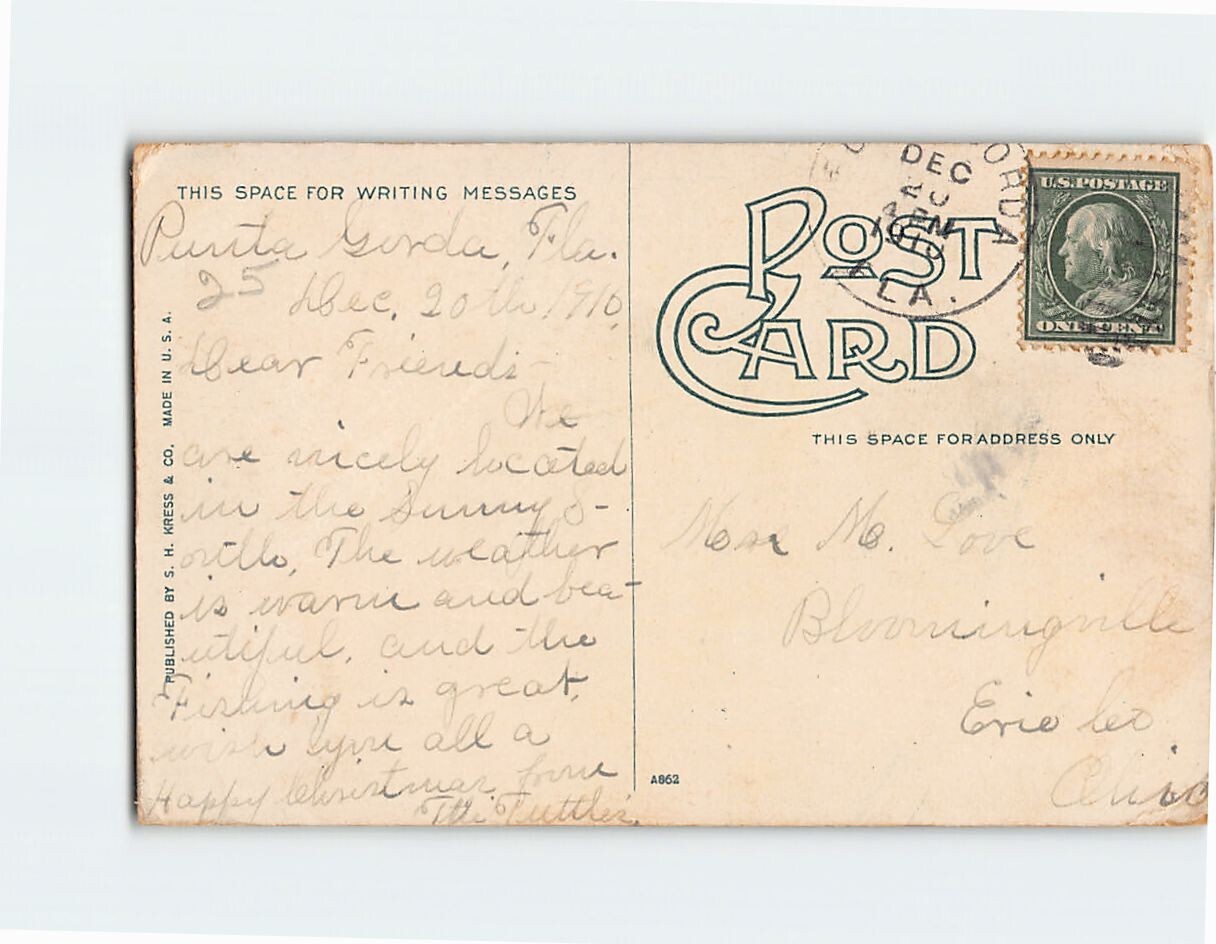 THIS SPACE FOR WRITING MESSAGES
Punta Gorda, Fla.
25 Dec. 20th 1910.
Dear Friends-
We
are nicely located
in the Sunny S-
outh, The weather
is warm and bea-
utiful, and the
Fishing is great,
wish you all a
Happy Christmas from
The Tuttles.
PUBLISHED BY S. H. KRESS & CO. MADE IN U. S. A.
POST
CARD
ORDA
DEC
1910
FLA.
U.S. POSTAGE
ONE CENT
THIS SPACE FOR ADDRESS ONLY
M. Love
Bloomingville
Erie Co
Ohio
A862